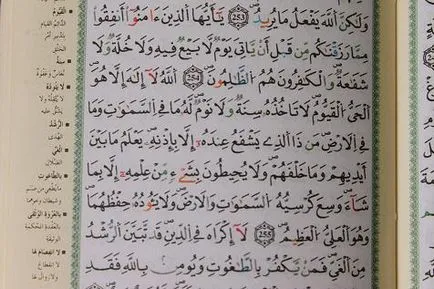 وَلَٰكِنَّ ٱللَّهَ يَفْعَلُ مَا يُرِيدُ ﴿253﴾ يَٰٓأَيُّهَا ٱلَّذِينَ ءَامَنُوٓا۟ أَنفِقُوا۟
مِمَّا رَزَقْنَٰكُم مِّن قَبْلِ أَن يَأْتِىَ يَوْمٌ لَّا بَيْعٌ فِيهِ وَلَا خُلَّةٌ وَلَا
شَفَٰعَةٌ وَٱلْكَٰفِرُونَ هُمُ ٱلظَّٰلِمُونَ ﴿254﴾ ٱللَّهُ لَآ إِلَٰهَ إِلَّا هُوَ
ٱلْحَىُّ ٱلْقَيُّومُ لَا تَأْخُذُهُۥ سِنَةٌ وَلَا نَوْمٌ لَّهُۥ مَا فِى ٱلسَّمَٰوَٰتِ وَمَا
فِى ٱلْأَرْضِ مَن ذَا ٱلَّذِى يَشْفَعُ عِندَهُۥٓ إِلَّا بِإِذْنِهِۦ يَعْلَمُ مَا بَيْنَ
أَيْدِيهِمْ وَمَا خَلْفَهُمْ وَلَا يُحِيطُونَ بِشَىْءٍ مِّنْ عِلْمِهِۦٓ إِلَّا بِمَا
شَآءَ وَسِعَ كُرْسِيُّهُ ٱلسَّمَٰوَٰتِ وَٱلْأَرْضَ وَلَا يَـُٔودُهُۥ حِفْظُهُمَا
وَهُوَ ٱلْعَلِىُّ ٱلْعَظِيمُ ﴿255﴾ لَآ إِكْرَاهَ فِى ٱلدِّينِ قَد تَّبَيَّنَ ٱلرُّشْدُ
مِنَ ٱلْغَىِّ فَمَن يَكْفُرْ بِٱلطَّٰغُوتِ وَيُؤْمِنۢ بِٱللَّهِ فَقَدِ
القيوم
سنة
نعاس وغفوة
لا يئوده
الرشد
الهدى
الغي
الضلال
بالطاغوت
بالعروة الوثقى
بالعقدة المحكمة
الوثيقة
لا انفصام لها
لا انقطاع
ولا زوال لها